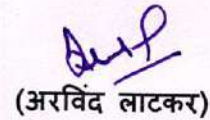 (अरविंद लाटकर)